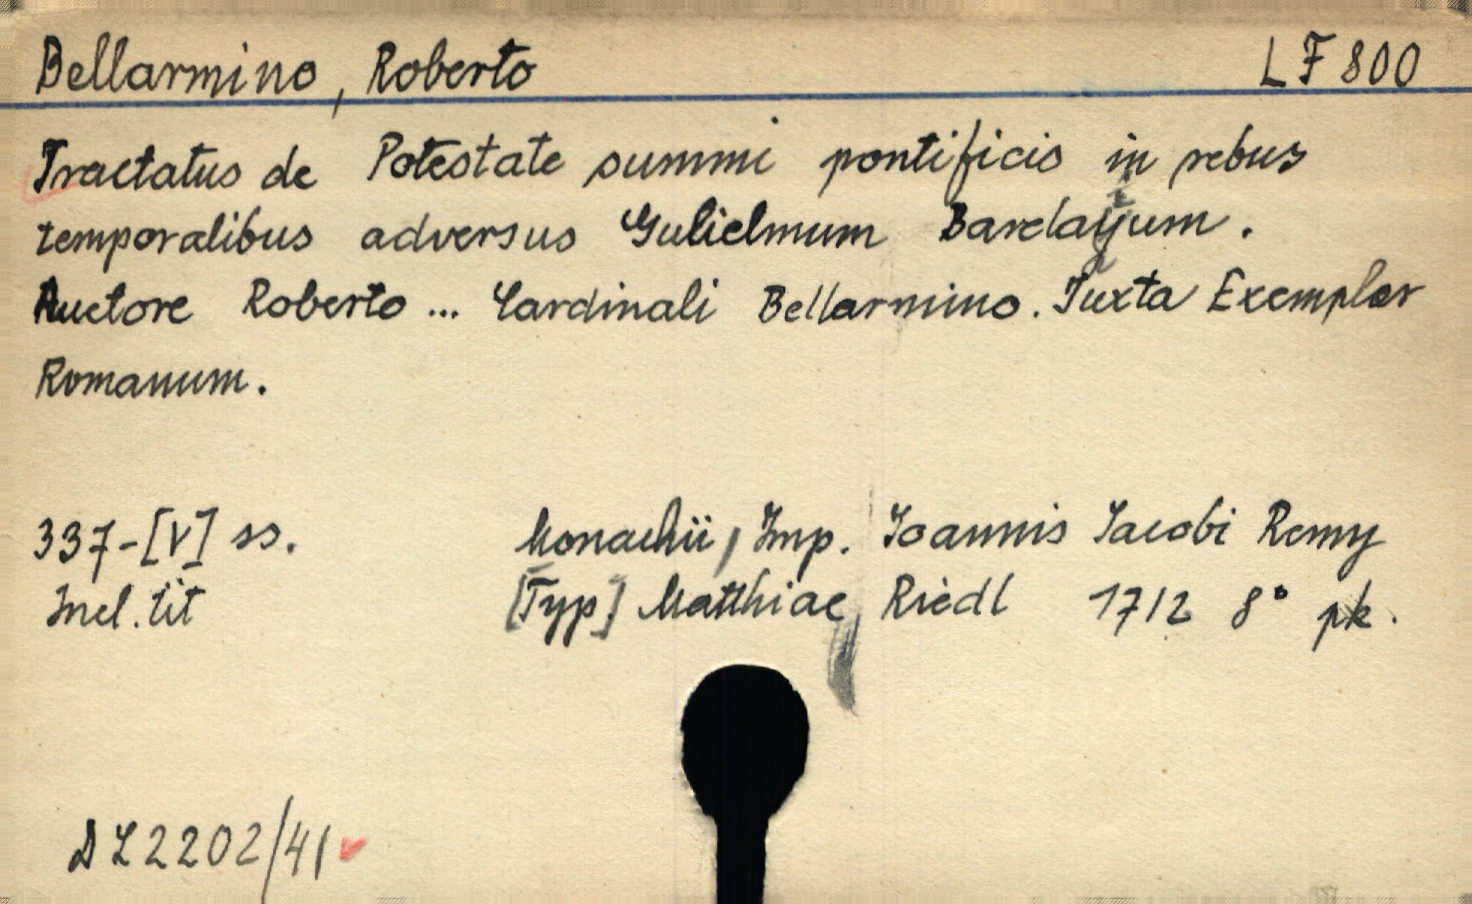 Bellarmino, Roberto LF 800
Tractatus de Potestate summi pontificis in rebus
temporalibus adversus Gulielmum Barclayum.
Auctore Roberto ... Cardinali Bellarmino. Iuxta Exemplar
Romanum.
337-[V] ss. Monachii, Imp. Ioannis Iacobi Remy
Incl. tit [Typ] Matthiae Riedl 1712 8° pk.
DL 2202/41